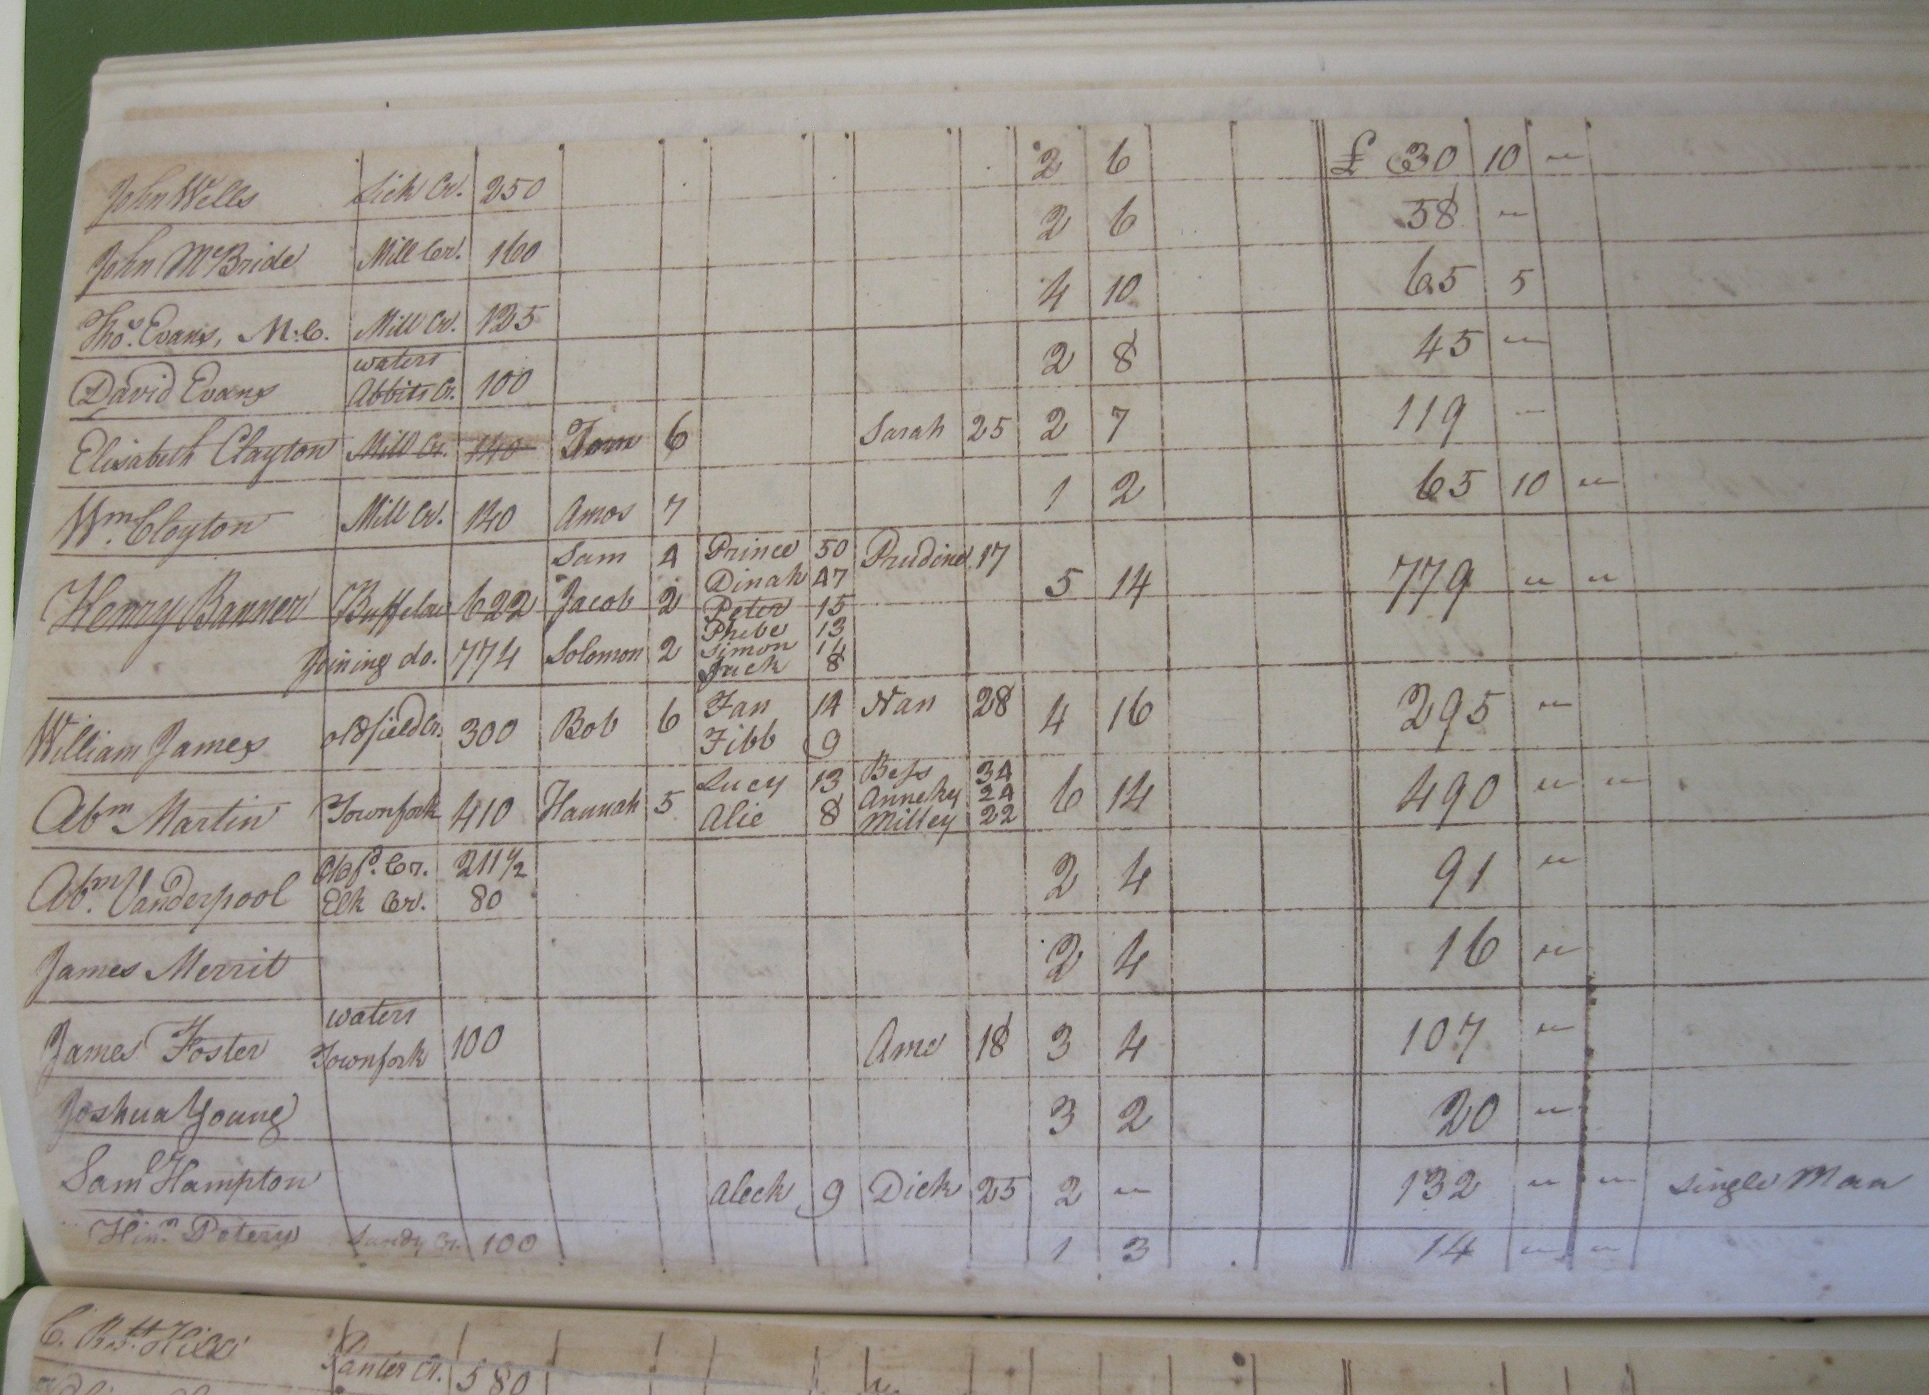 John Wells Lick Cr. 250 2 6 £ 30 10 "
John McBride Mill Cr. 160 2 6 58 "
Thos. Evans, M.C. Mill Cr. 125 4 10 65 5
David Evans waters Abbits Cr. 100 2 8 45 "
Elisabeth Clayton Mill Cr. 140 Tom 6 Sarah 25 2 7 119 "
Wm. Clayton Mill Cr. 140 Amos 7 1 2 65 10 "
Sam 4 Prince 50 Prudine 17
Dinah 47
Henry Banner Buffelow 622 Jacob 2 Peter 15 5 14 779 " "
Phebe 13
Joining do. 774 Solomon 2 Simon 14
Jack 8
William James oldfield Cr. 300 Bob 6 Fan 14 Nan 28 4 16 295 "
Fibb 9
Lucy 13 Bess 34
Abm Martin Townfork 410 Hannah 5 Anneky 24 6 14 490 " "
Alie 8 Milley 22
Abm. Vanderpool Cr. 211 1/2 2 4 91 "
Elk Cr. 80
James Merrit 2 4 16 "
James Foster waters Townfork 100 Ame 18 3 4 107 "
Joshua Young 3 2 20 "
Saml Hampton Aleck 9 Dick 25 2 " 132 " " single Man
Peters Sandy Cr. 100 1 3 14 " "
Panter Cr. 580